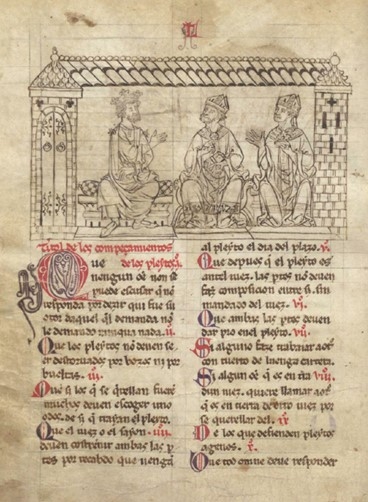 Titol de los compeçamientos
de los pleytos.
Que
nengun oe non se
puede escusar q̃ nõ
responda por dezir qui fue su
otor daquel q̃l demanda nõ
le demando nunqua nada. ii.
Que los pleytos non deven se
er destoruados por bozes ni por
bueltas. iii.
Que si los que se q̃rellan fuerẽ
muchos deuen escoger uno
odos. de si q̃ trayan el pleyto.
Que el iuez o el sayon. iiii.
deuen costrenir ambas las p
tes por recabdo que uengã
al pleyto el dia del plazo. v.
Que depues q̃ el pleyto es
antel iuez. las ptes nõ deuen
fazer composicion entre si. sin
mandado del iuez. vi.
Que ambas las ptes deuen
dar pro en el pleyto. vii.
Si alguno faze trabaiar aotr̃
con tuerto de luenga carrera.
Si algun oe q̃ es en t̃ra viii.
dun iuez. quiere llamar aotr̃
q̃ es en tierra dotro iuez por
se querellar del. ix.
De los que defienden pleytos
agenos. x.
Que tod omne deue responder